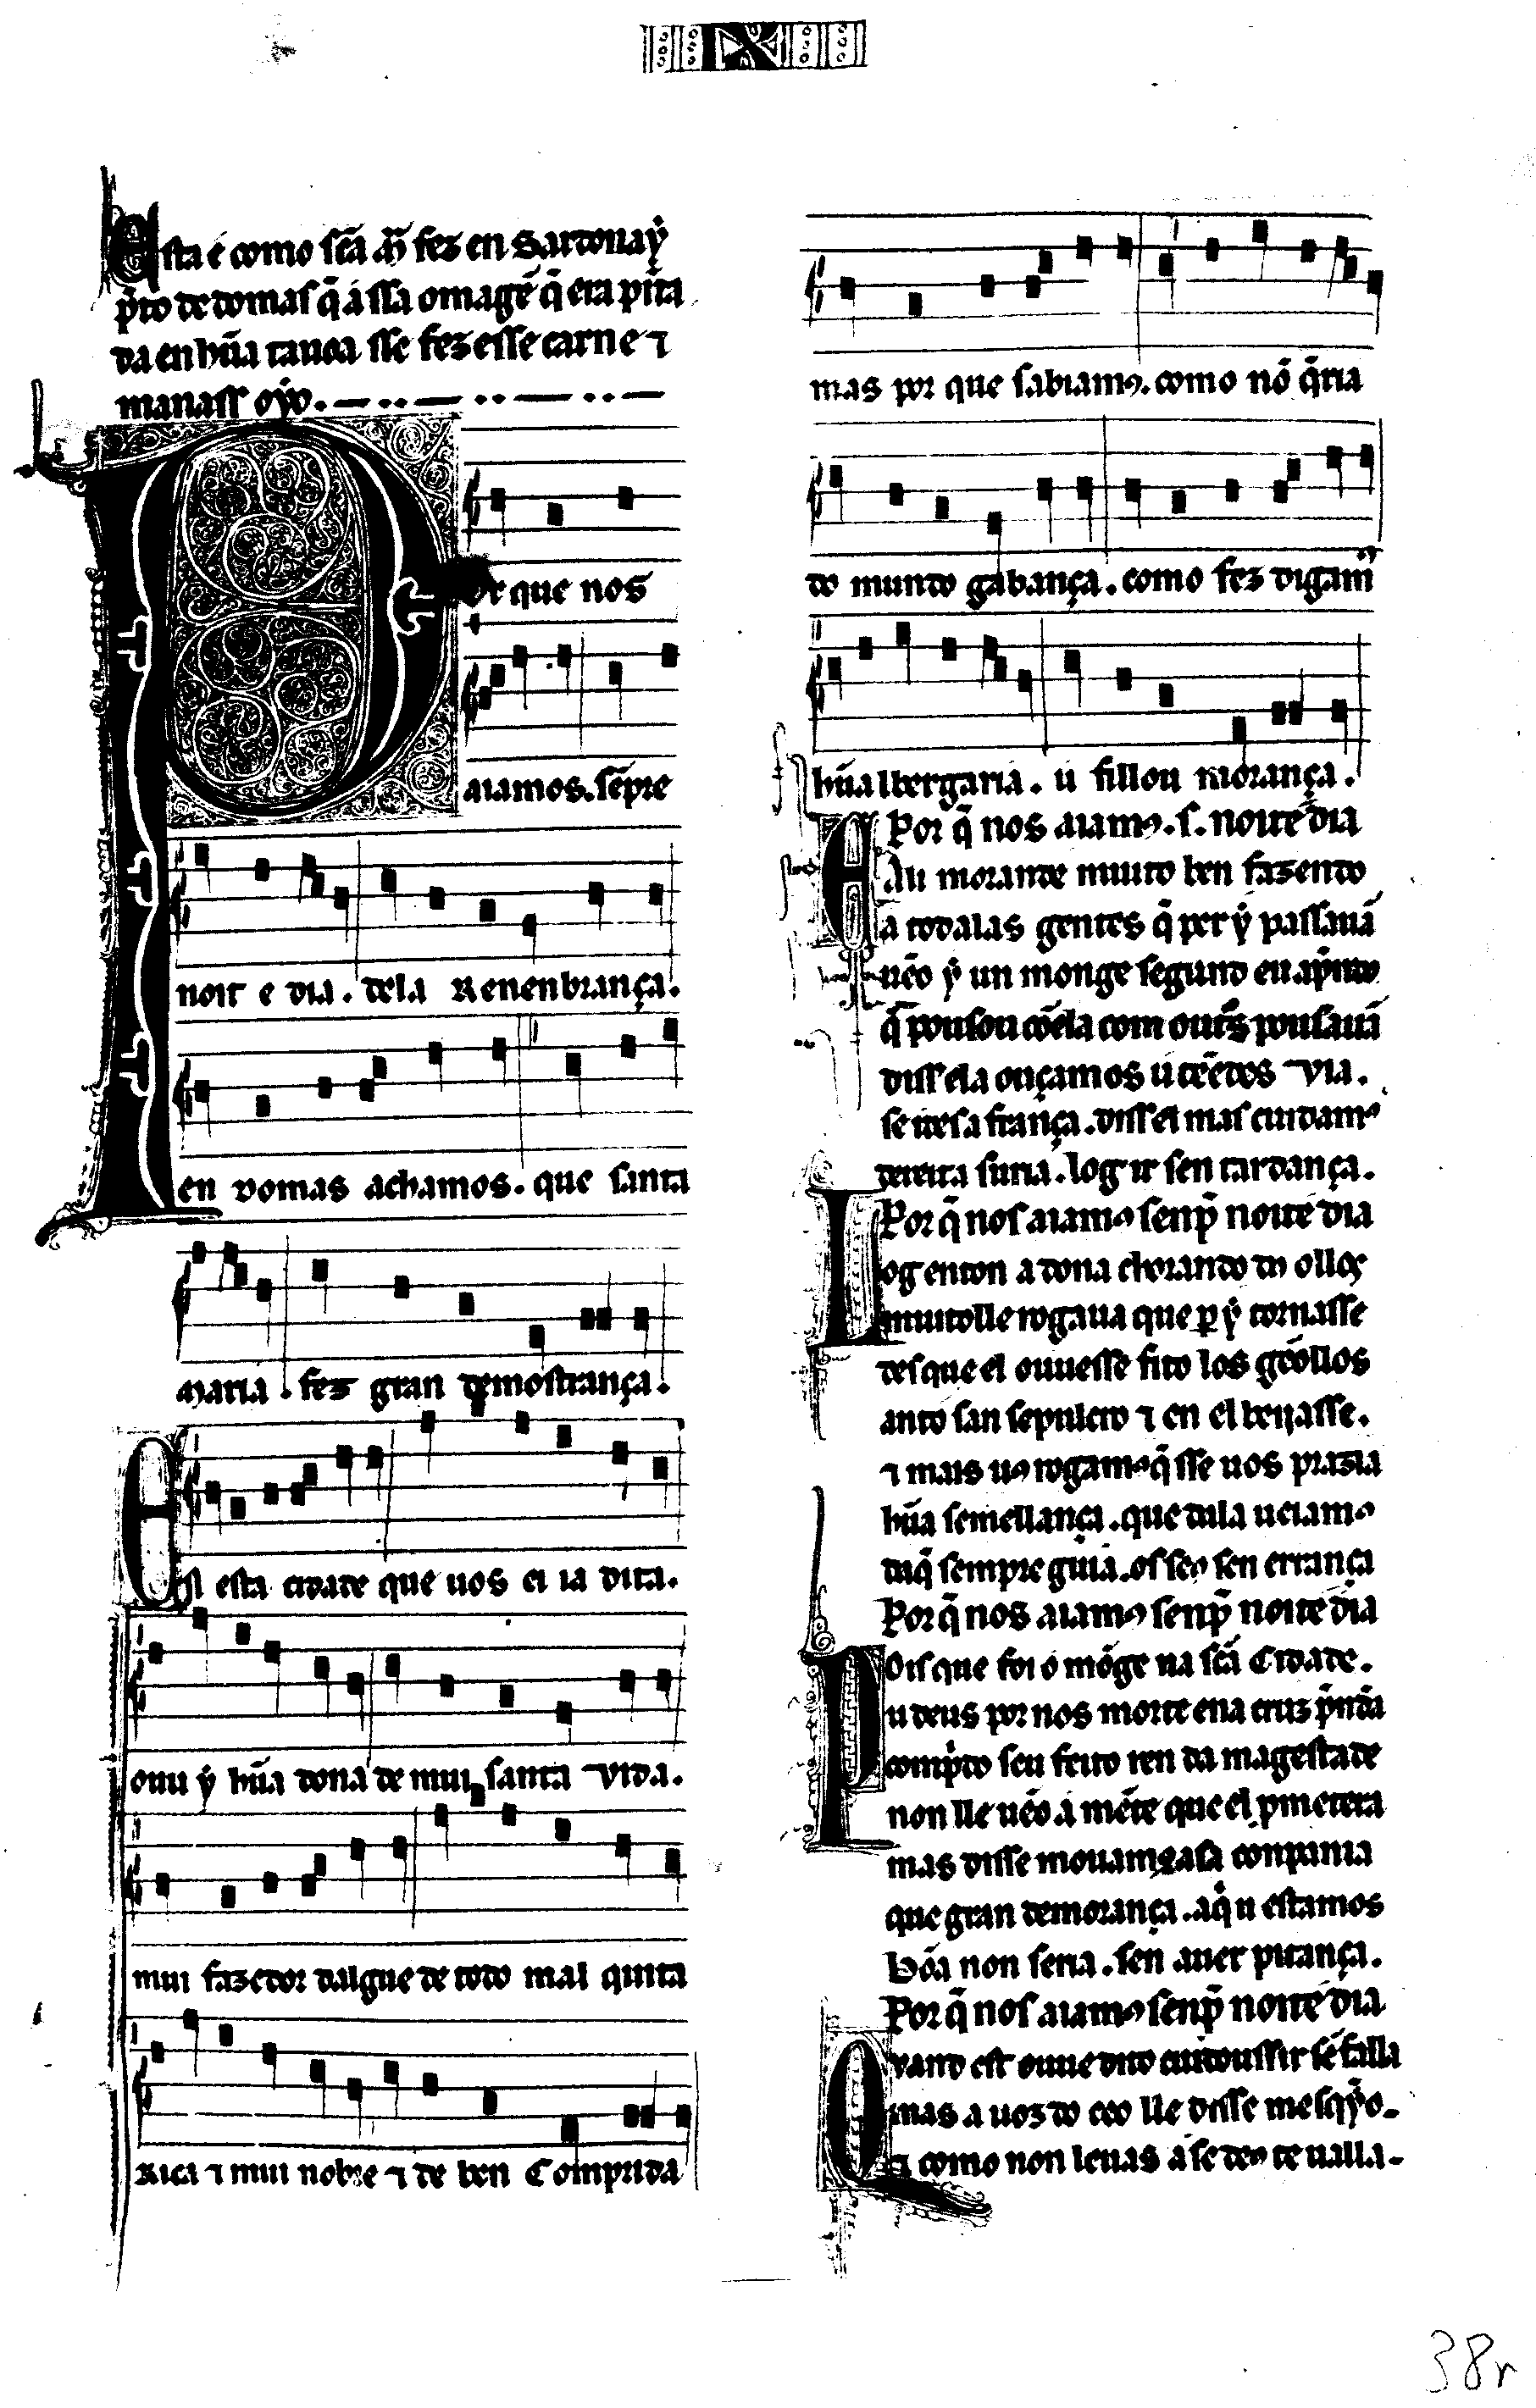 IX
Esta é como sc̃a m̃ fez en Sardonaẏ
p̃to de domas q̃ a ssa omagẽ q̃ era pĩta
da en hũa tauoa sse fezesse carne ⁊
manass oẏo.
Por que nos
aiamos. sẽpre
noit e dia. dela Renenbrança.
en domas achamos. que santa
Maria. fez gran demostrança.
En esta cidade que uos ei ia dita.
ouu ẏ hũa dona de mui santa vida.
mui fazedor dalgue de todo mal quita
Rica ⁊ mui nobre ⁊ de ben Comprida
mas por que sabiamꝰ. como nõ q̃ria
do mundo gabança. como fez digamꝰ
hũa lbergaria. u fillou morança.
Por q̃ nos aiamꝰ. s. noite dia
E ali morande muito ben fazendo
a todalas gentes q̃ per ẏ passauã
uẽo ẏ un monge segund eu aprendo
q̃ pousou cõela com outͥs pousauã
diss ela ouçamos u tẽedes via.
se ides a frança. diss el mas cuidamꝰ
dereita suria. log ir sen tardança.
Por q̃ nos aiamꝰ senp̃ noite dia
Log enton a dona chorando dos ollos
muitolle rogaua que per ẏ tornasse
des que el ouuesse fito los gẽollos
anto san sepulcro ⁊ en el beiiasse.
⁊ mais uꝰ rogamꝰ q̃ sse uos prazia
hũa semellança. que dala ueiamꝰ
daq̃ sempre guia. os seꝰ sen errança
Por q̃ nos aiamꝰ senp̃ noite dia
Pois que foi o mõge na sc̃a Cidade.
u deus por nos morte ena cruz p̃ndia
comprido seu feito ren da magestade
non lle uẽo a mẽte que el pmetera
mas disse mouamꝰ a sa conpania
que gran demorança. aqͥ u estamos
bõa non seria. sen auer pitança.
Por q̃ nos aiamꝰ senp̃ noite dia
Quand est ouue dito cuidouss ir sẽ falla
mas a uoz do ceo lle disse mesqẏo.
⁊ como non leuas a se deꝰ te ualla.
38r